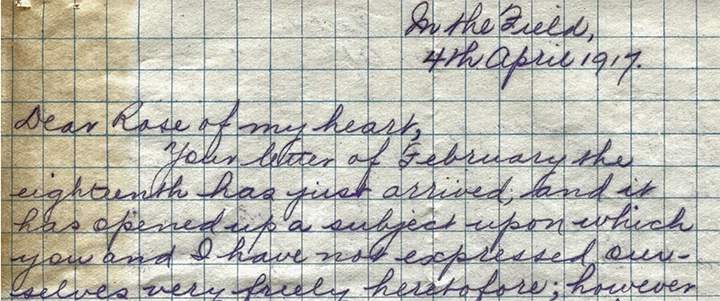 In the Field,
4th April 1917.
Dear Rose of my heart,
Your letter of February the
eighteenth has just arrived, and it
has opened up a subject upon which
you and I have not expressed our-
selves very freely heretofore; however